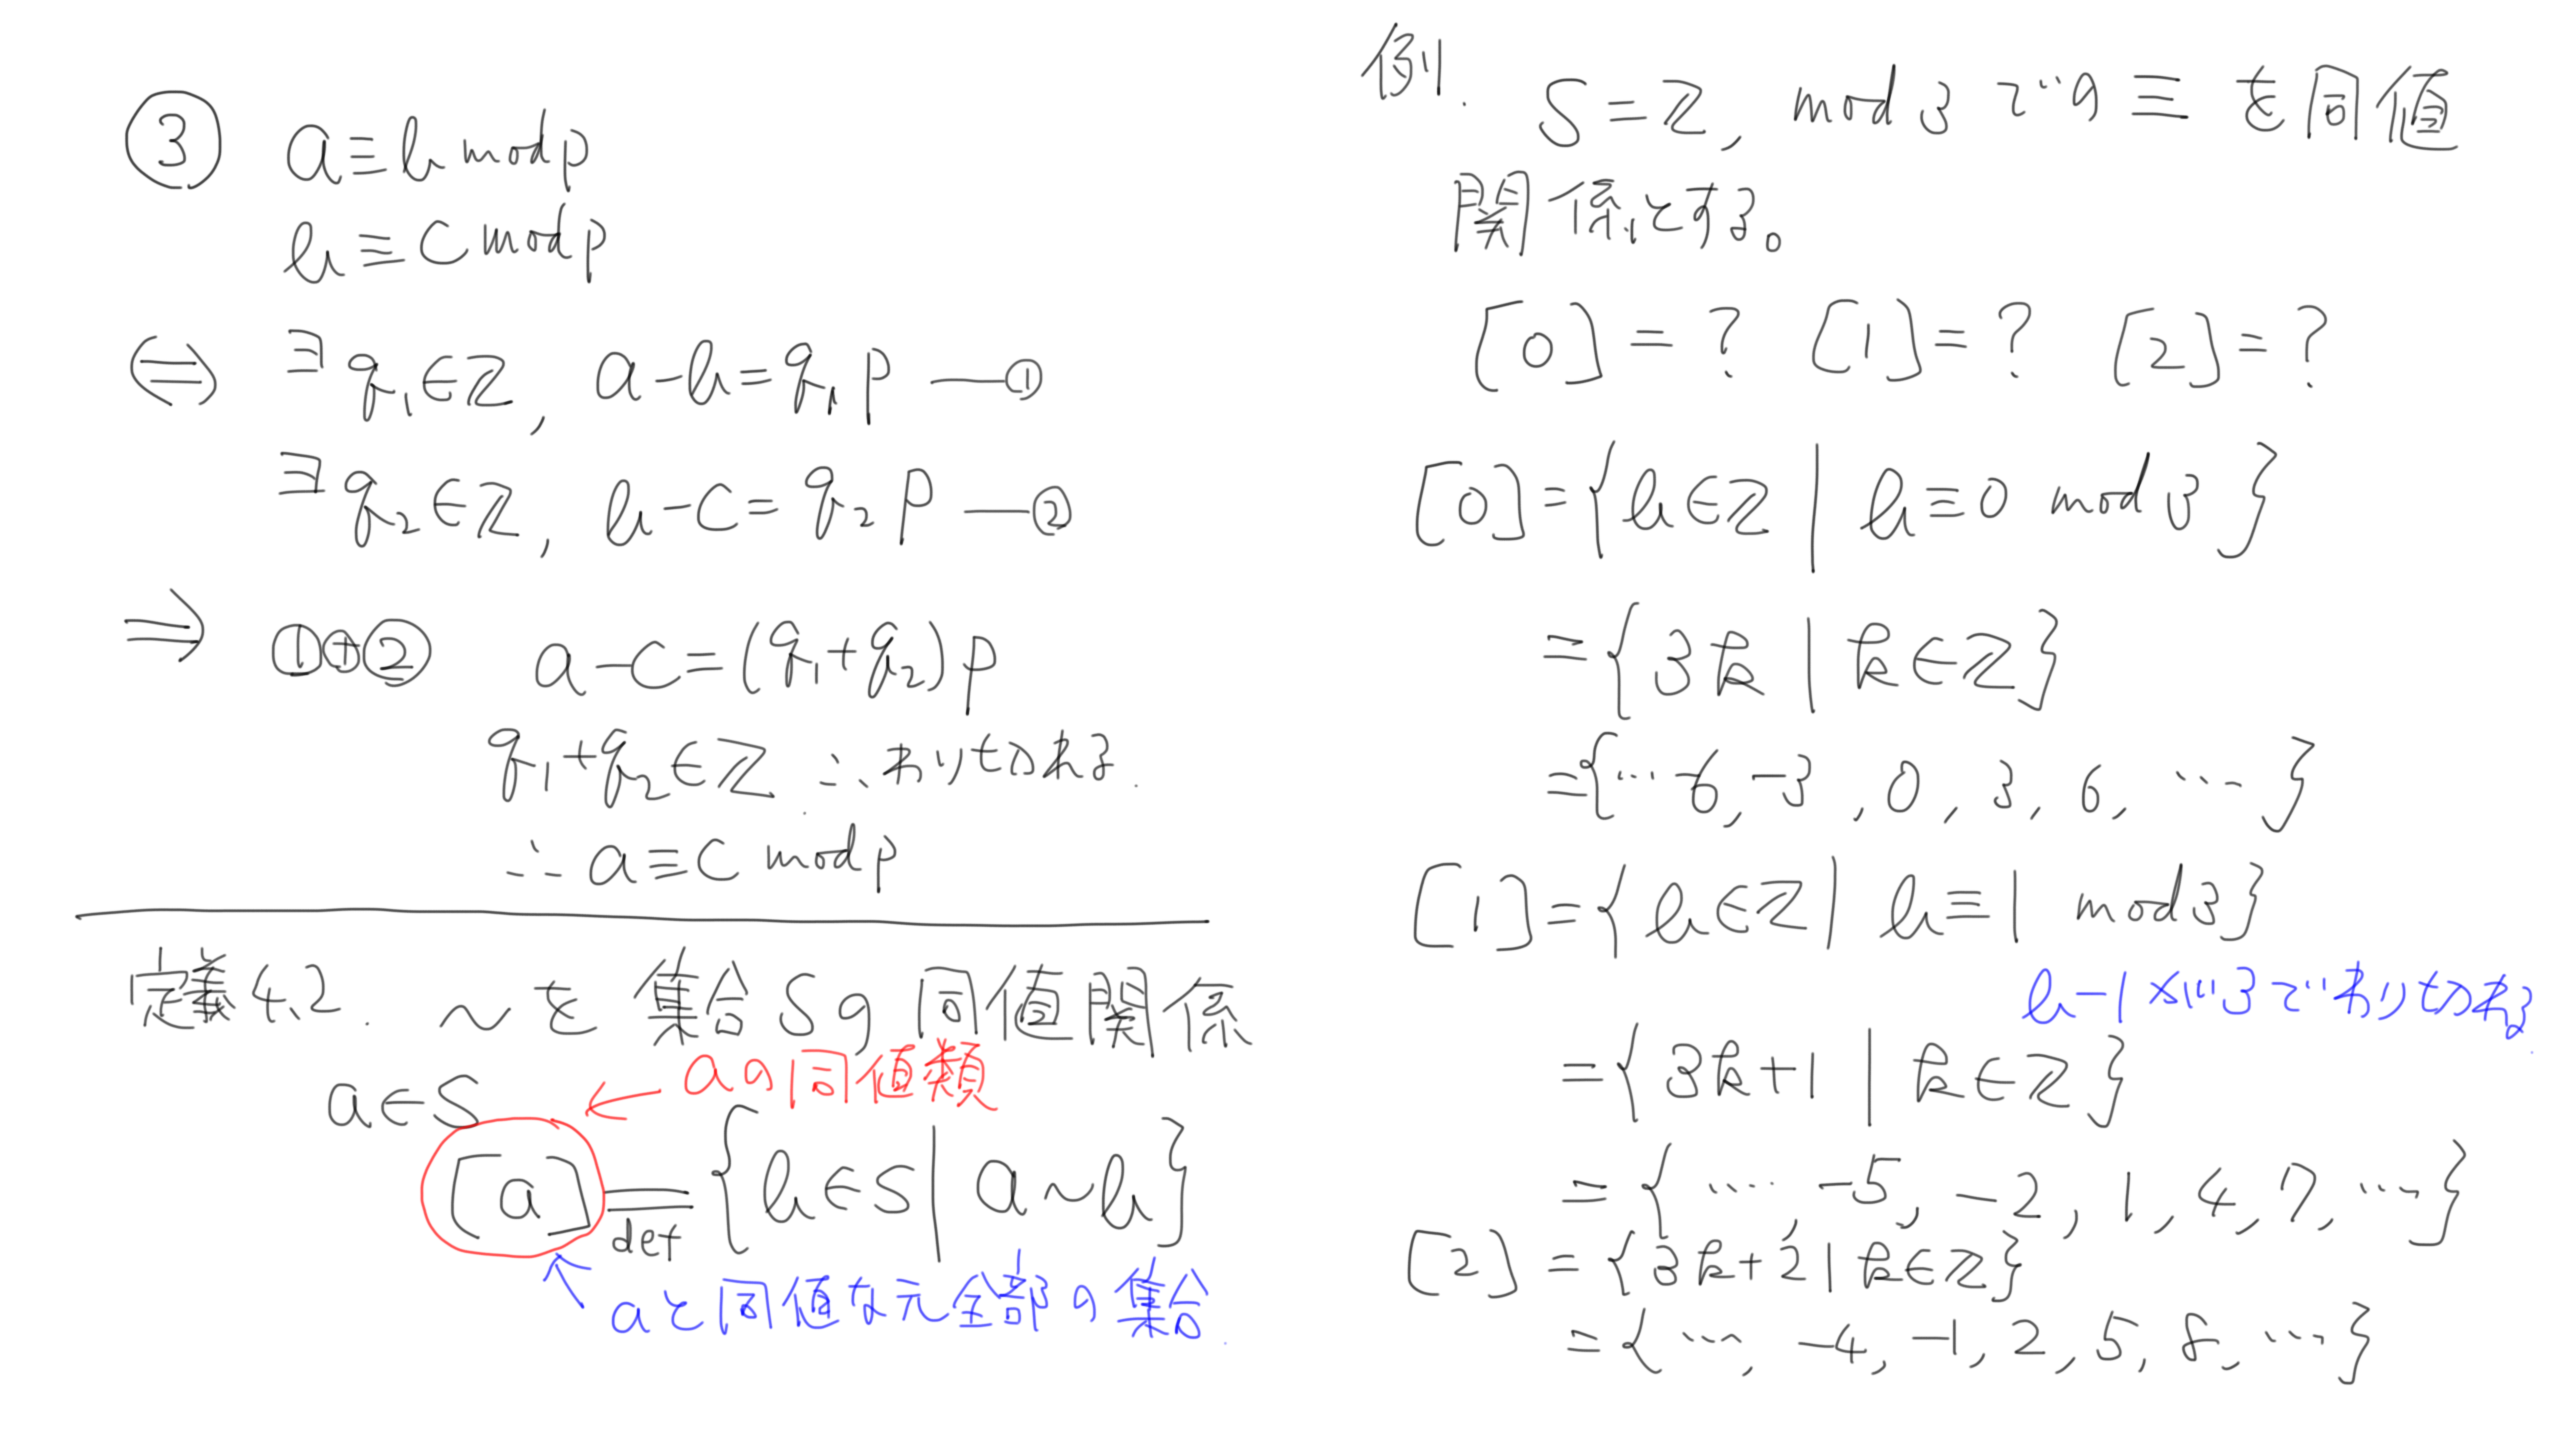 ③ a≡b mod p
b≡c mod p
⇔ ∃q₁∈ℤ, a-b=q₁p —①
∃q₂∈ℤ, b-c=q₂p —②
⇒ ①+② a-c=(q₁+q₂)p
q₁+q₂∈ℤ ∴わり切れる.
∴ a≡c mod p
定義4.2. ~を集合Sの同値関係
a∈S ← aの同値類
[a] = def {b∈S | a~b}
↖ aと同値な元全部の集合.
例. S=ℤ, mod 3 での ≡ を同値
関係とする。
[0]=? [1]=? [2]=?
[0]={b∈ℤ | b≡0 mod 3}
={3k | k∈ℤ}
={… -6, -3, 0, 3, 6, …}
[1]={b∈ℤ | b≡1 mod 3}
b-1が3でわり切れる.
={3k+1 | k∈ℤ}
={…, -5, -2, 1, 4, 7, …}
[2]={3k+2 | k∈ℤ}
={…, -4, -1, 2, 5, 8, …}